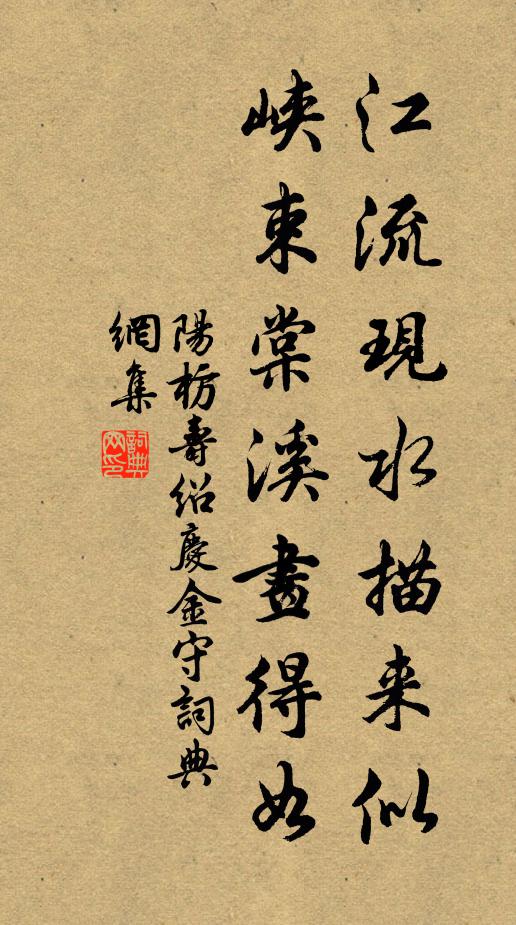 江流現水描来似
峡束棠溪畫得如
陽枋壽紹慶金守詞典
網集
詞典
网印